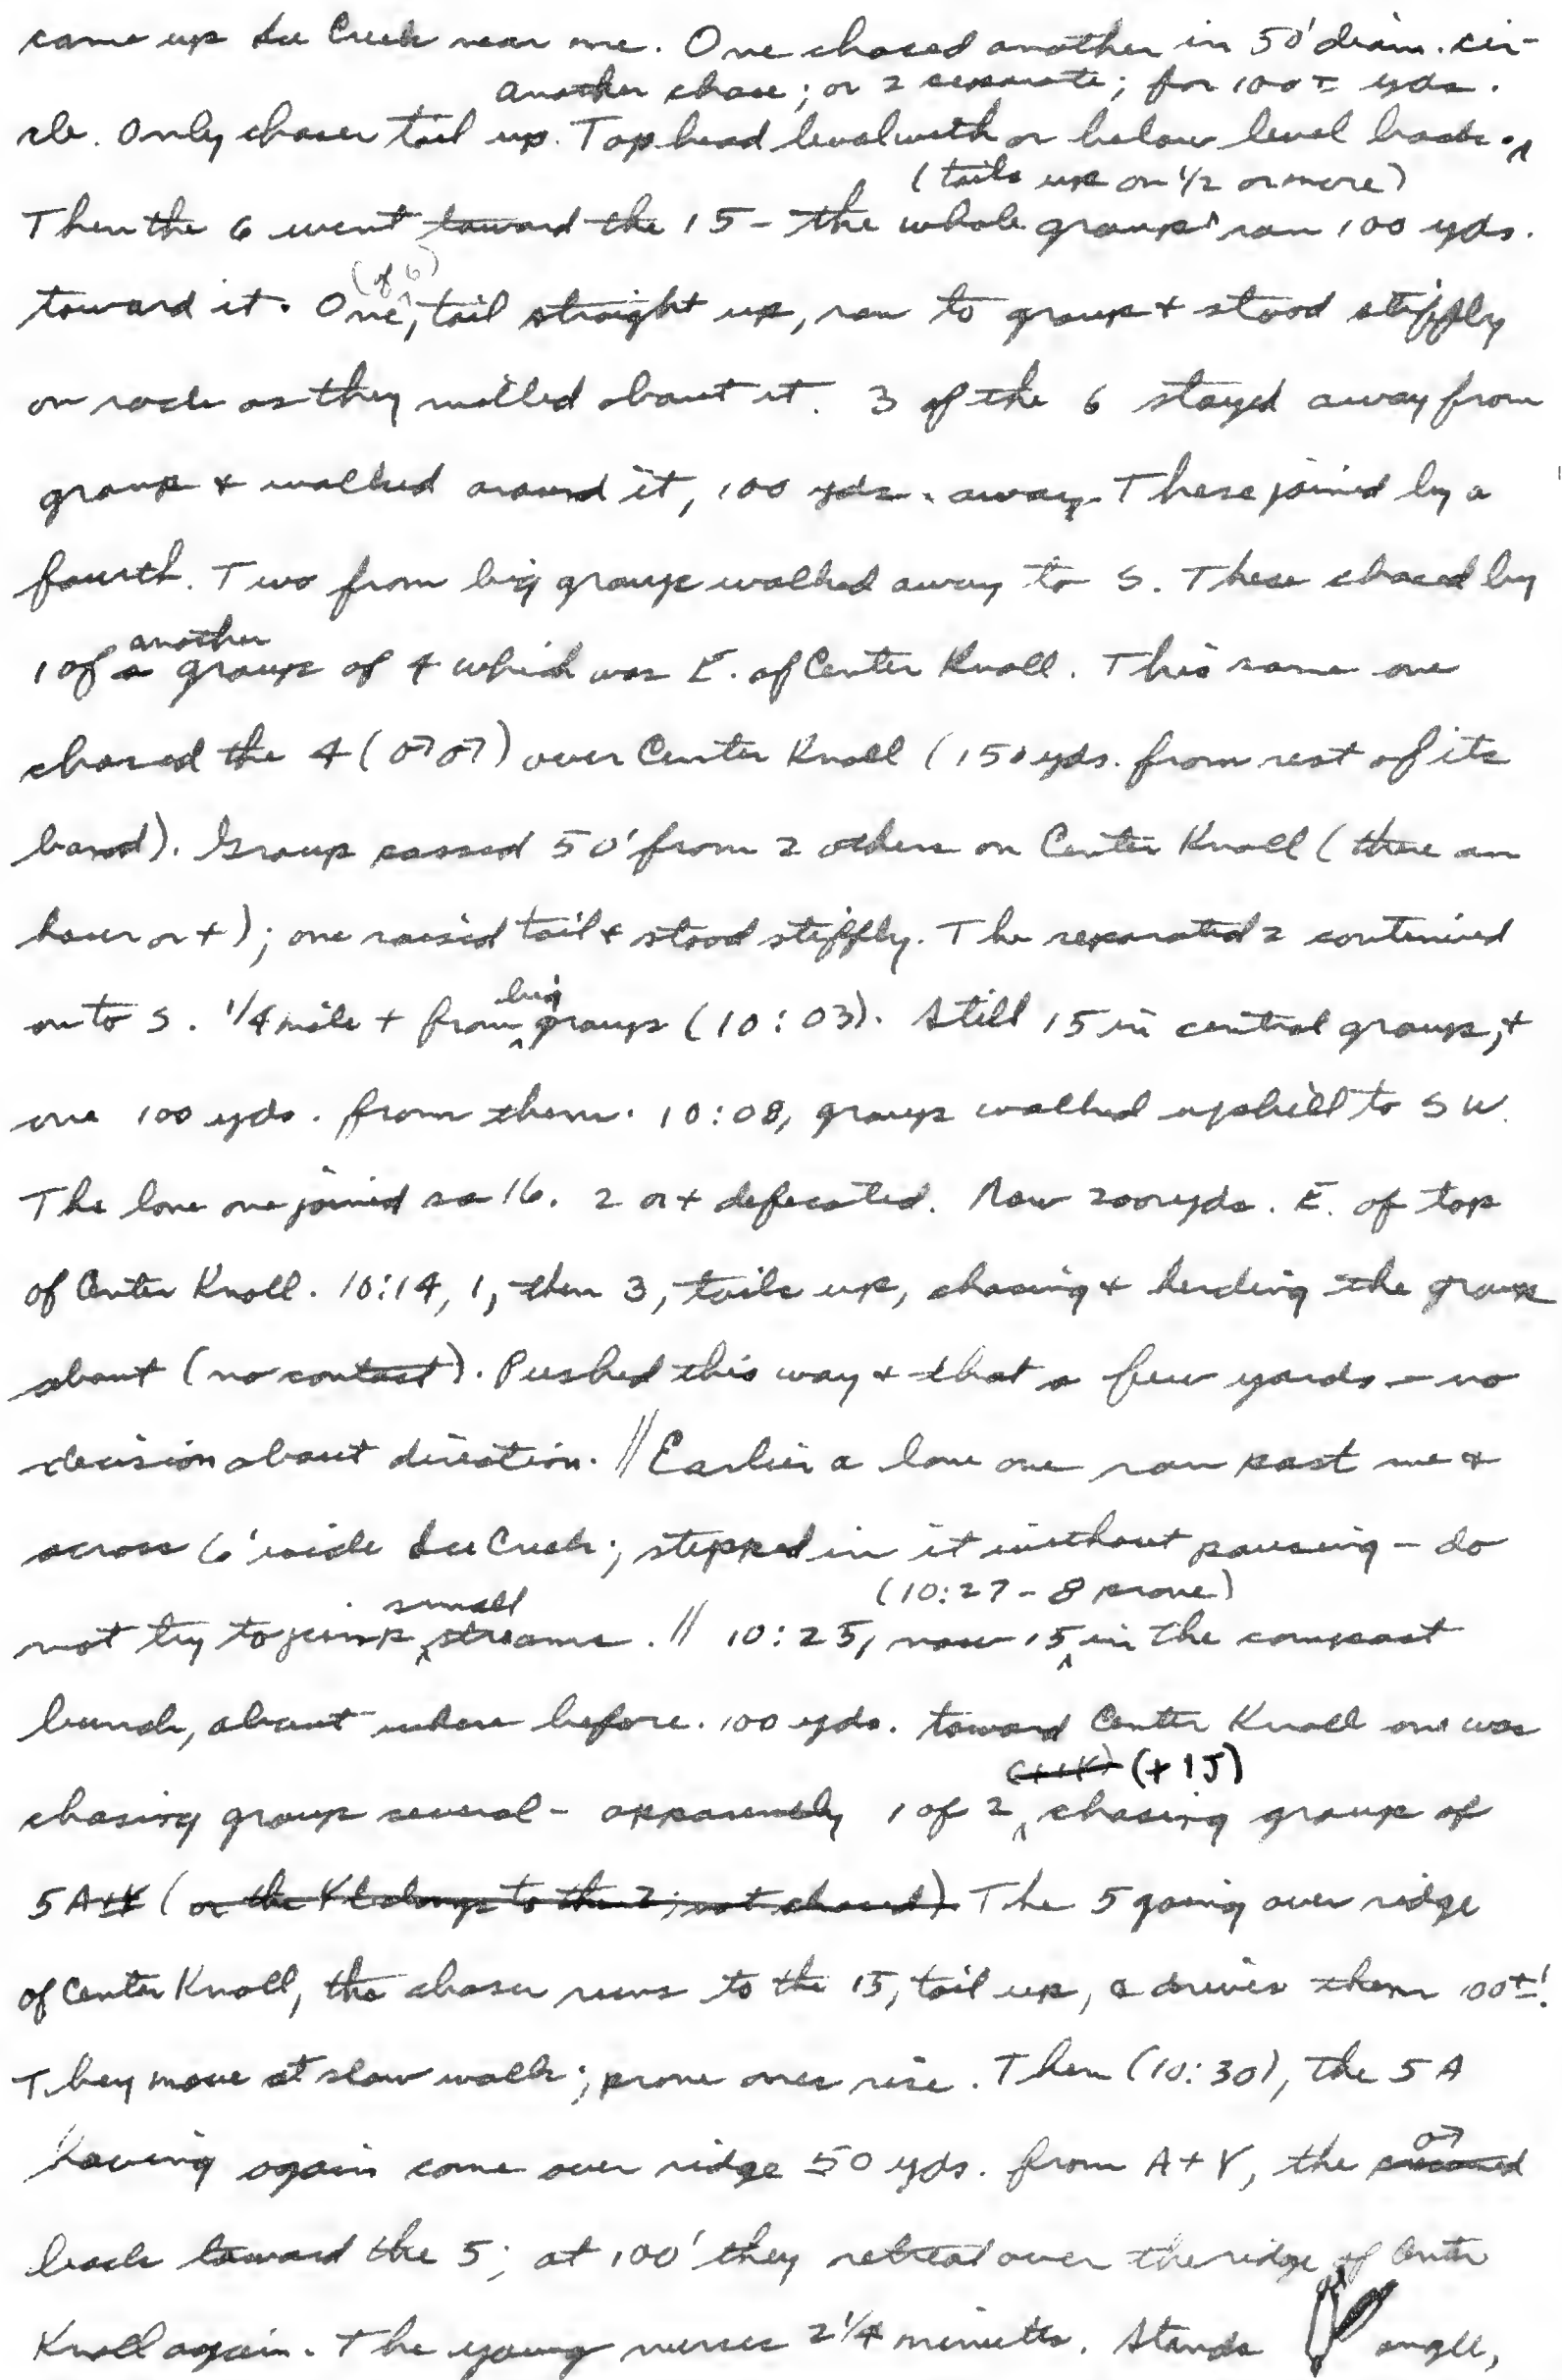 came up Ice Creek near me. One chased another in 50' diam. cir-
another chase; or 2 separate; for 100± yds.
cle. Only chaser tail up. Top head level with or below level back.^
(tails up on 1/2 or more)
Then the 6 went toward the 15 - the whole group ran 100 yds.
(of 6)
toward it. One,^ tail straight up, ran to group & stood stiffly
on rock as they milled about it. 3 of the 6 stayed away from
group & walked around it, 100 yds. away. These joined by a
fourth. Two from big group walked away to S. These chased by
another
1 of a group of 4 which was E. of Center Knoll. This same one
chased the 4 (♂♂) over Center Knoll (150 yds. from rest of its
band). Group passed 50' from 2 others on Center Knoll (there an
hour or +); one raised tail & stood stiffly. The separated 2 continued
big
on to S. 1/4 mile + from ^ group (10:03). Still 15 in central group, +
one 100 yds. from them. 10:08, group walked uphill to SW.
The lone one joined so 16. 2 or + defecated. Now 200 yds. E. of top
of Center Knoll. 10:14, 1, then 3, tails up, chasing & herding the group
about (no contact). Pushed this way & that a few yards - no
decision about direction. // Earlier a lone one ran past me &
across 6' wide Ice Creek; stepped in it without pausing - do
small (10:27 - 8 prone)
not try to jump ^ streams. // 10:25, now 15 ^ in the compact
bunch, about where before. 100 yds. toward Center Knoll one was
(++Y) (+1J)
chasing group several - apparently 1 of 2 ^ chasing group of
5A+Y (or the Y belongs to the 2; not chased). The 5 going over ridge
of Center Knoll, the chaser runs to the 15, tail up, & drives them 100±'.
They move at slow walk; prone ones rise. Then (10:30), the 5 A
having again come over ridge 50 yds. from A+Y, the ♂
back toward the 5; at 100' they retreat over the ridge of Center
Knoll again. The young nurses 2 1/4 minutes. Stands angle,